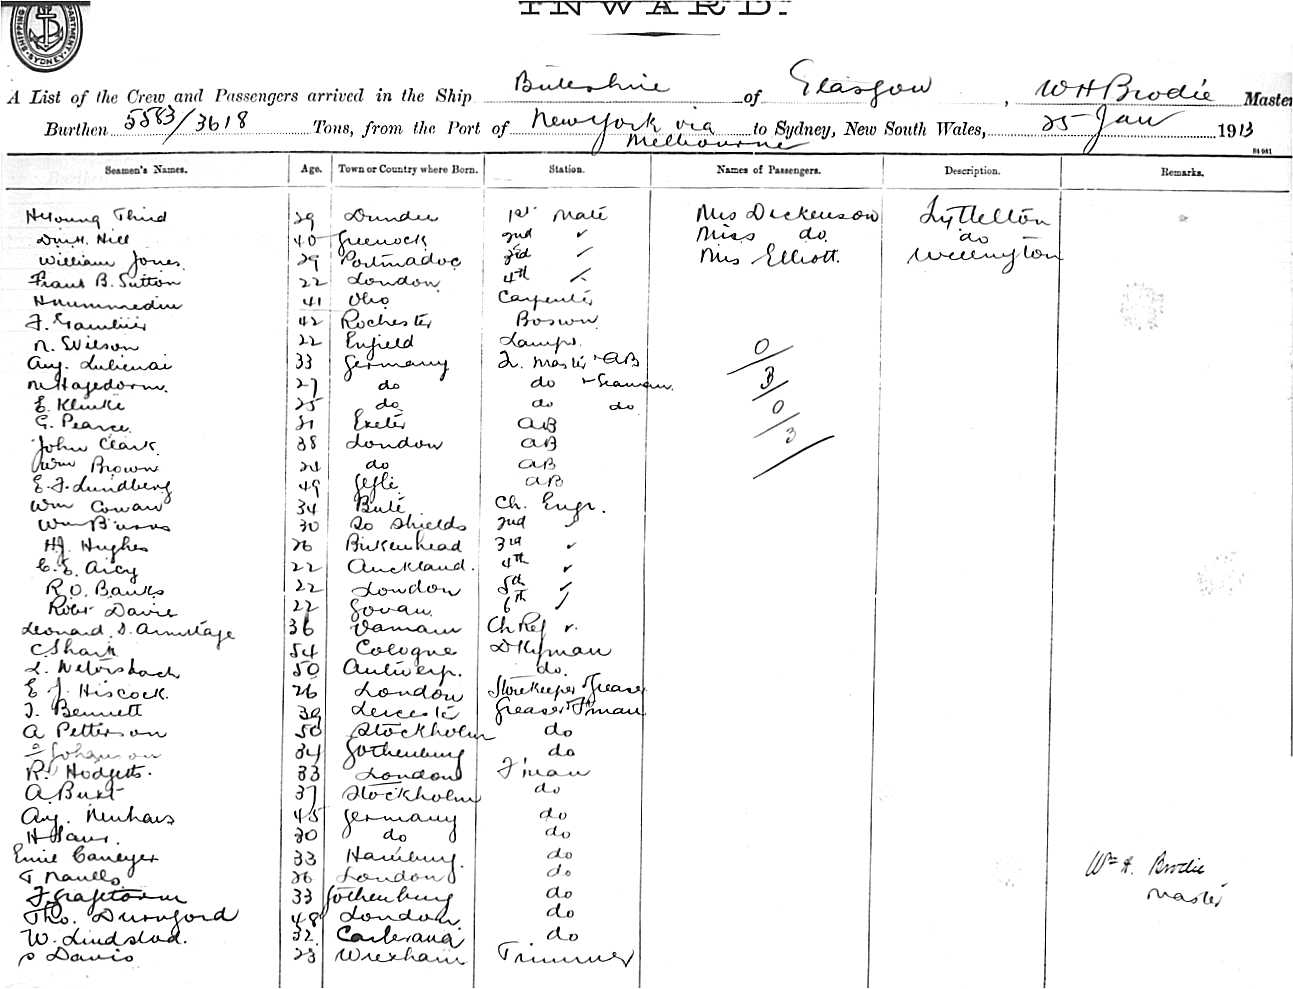 INWARD.
SHIPPING DEPARTMENT SYDNEY
A List of the Crew and Passengers arrived in the Ship Buteshire of Glasgow, W H Brodie Master
Burthen 5583/3618 Tons, from the Port of New York via Melbourne to Sydney, New South Wales, 25 Jan 1913
Seamen's Names. Age. Town or Country where Born. Station. Names of Passengers. Description. Remarks.
HYoung Third 29 Dundee 1st Mate Mrs Dickenson Lyttelton
Hill 40 Greenock 2nd ✓ Miss do do
William Jones 29 Portmadoc 3rd ✓ Mrs Elliott Wellington
Frank B. Sutton 22 London 4th ✓
41 Ohio Carpenter
42 Rochester Boswn
N. Wilson 22 Enfield Lamps
Aug. 33 Germany Q. Master + AB
M Hagedorn. 27 do do + Seaman
E. Klinke 25 do do do
G. Pearce. 31 Exeter AB
John Clark 38 London AB
Wm Brown 24 do AB
E. F. Lundberg 49 Gefle AB
Wm Cowan 34 Bute Ch. Engr.
Wm Burns 30 So Shields 2nd ✓
HJ. Hughes 26 Birkenhead 3rd ✓
C. E. Arcy 22 Auckland. 4th ✓
R. O. Banks 22 London 5th ✓
Robt Davie 22 Govan. 6th ✓
Leonard S. Armitage 36 Ch Ref ✓
C Shark 54 Cologne DKyman
50 Antwerp. do.
E J. Hiscock. 26 London Storekeeper + Greaser
T. Bennett 39 Leicester Greaser + F'man
A Petterson 50 Stockholm do
34 Gothenburg do
R. Hodgetts. 33 London F'man
A. Burt 37 Stockholm do
Aug. Neuhaus 45 Germany do
H 30 do do
33 Hamburg. do
T 26 London do
F. 33 Gothenburg do
Tho. Durnford 48 London. do
W. Lindstad. 32 do
S Davis 23 Wrexham Trimmer
0
3
0
3
Wm H. Brodie
Master